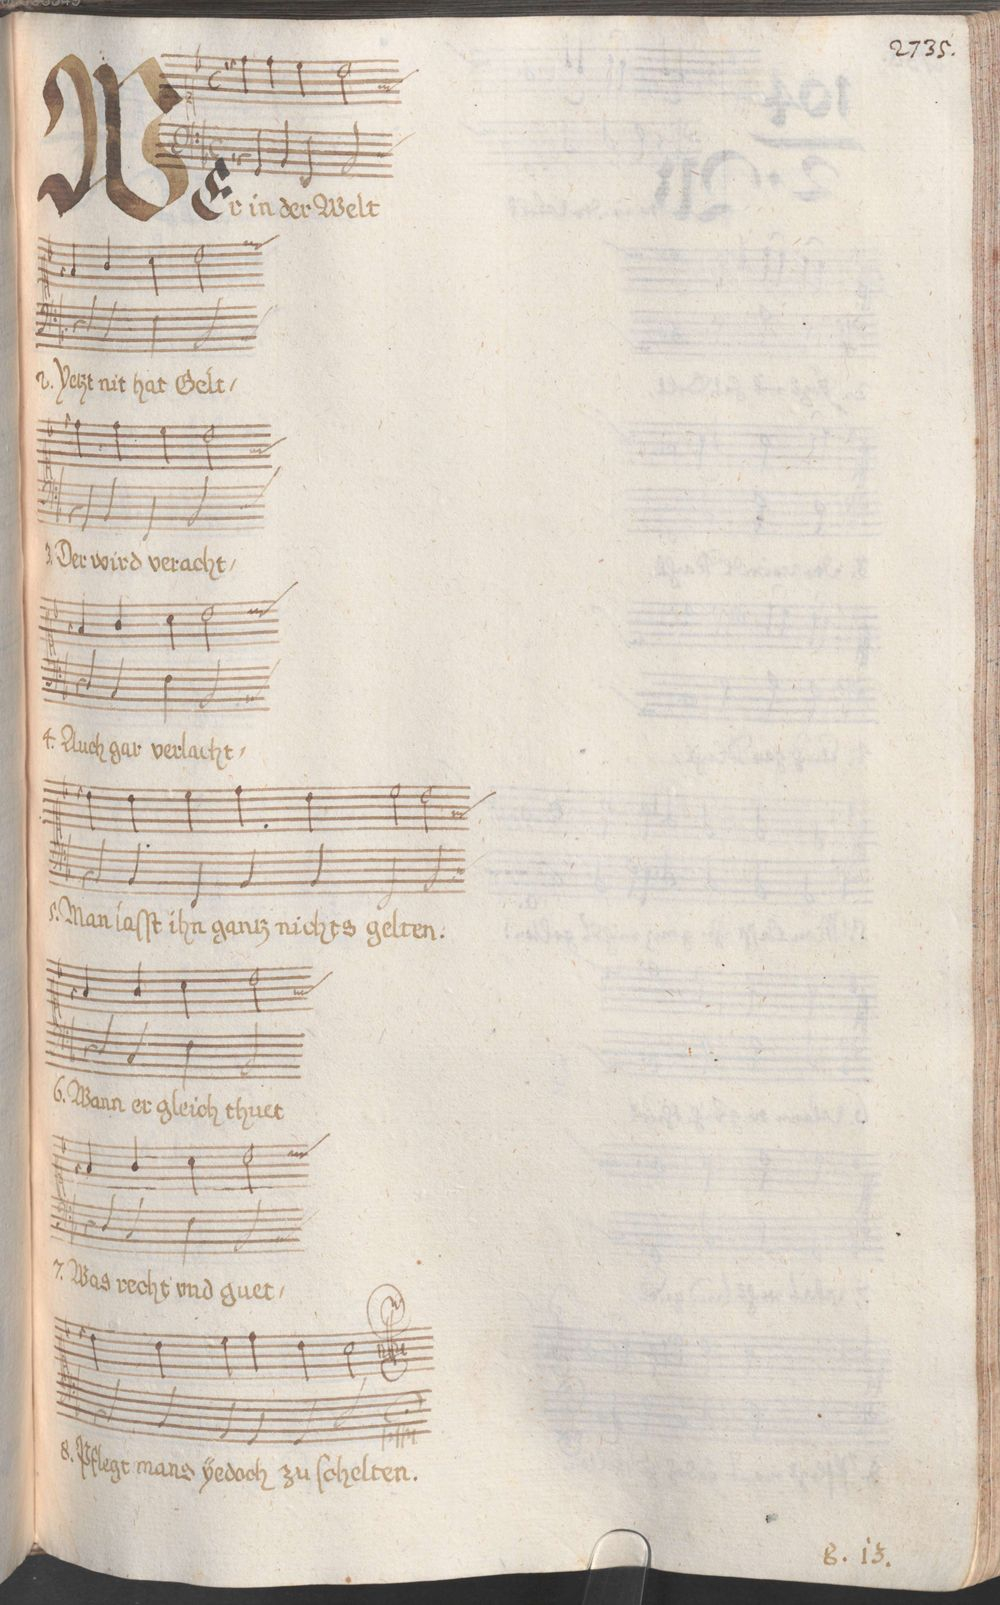 2735.
WEr in der Welt
2. Yetzt nit hat Gelt/
3. Der wird veracht/
4. Auch gar verlacht/
5. Man lasst ihn gantz nichts gelten.
6. Wann er gleich thuet
7. Was recht vnd guet/
8. Pflegt mans ÿedoch zu schelten.
8. 13.